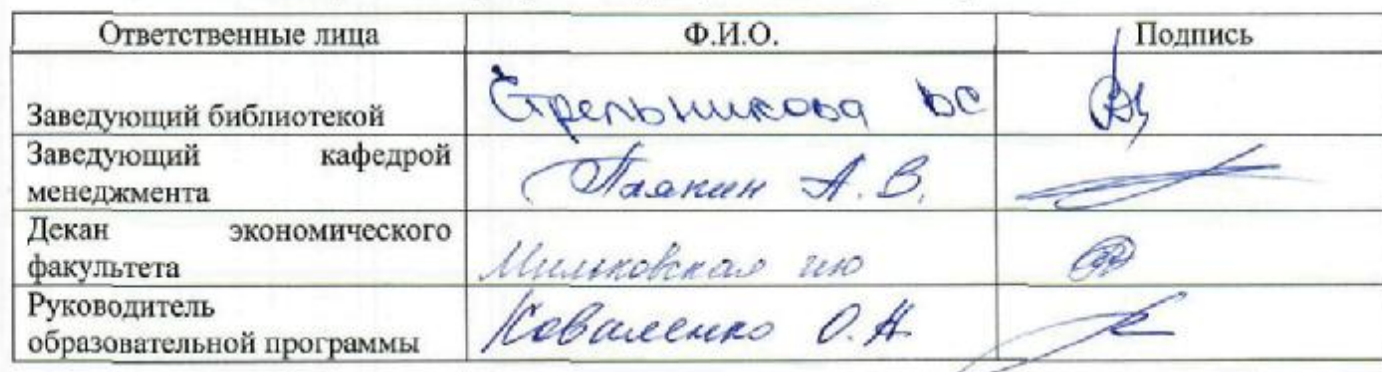 Ответственные лица Ф.И.О. Подпись
Заведующий библиотекой Стрельникова ВС
Заведующий кафедрой
менеджмента А. В.
Декан экономического
факультета Мильковская ию
Руководитель
образовательной программы Коваленко О. Н.